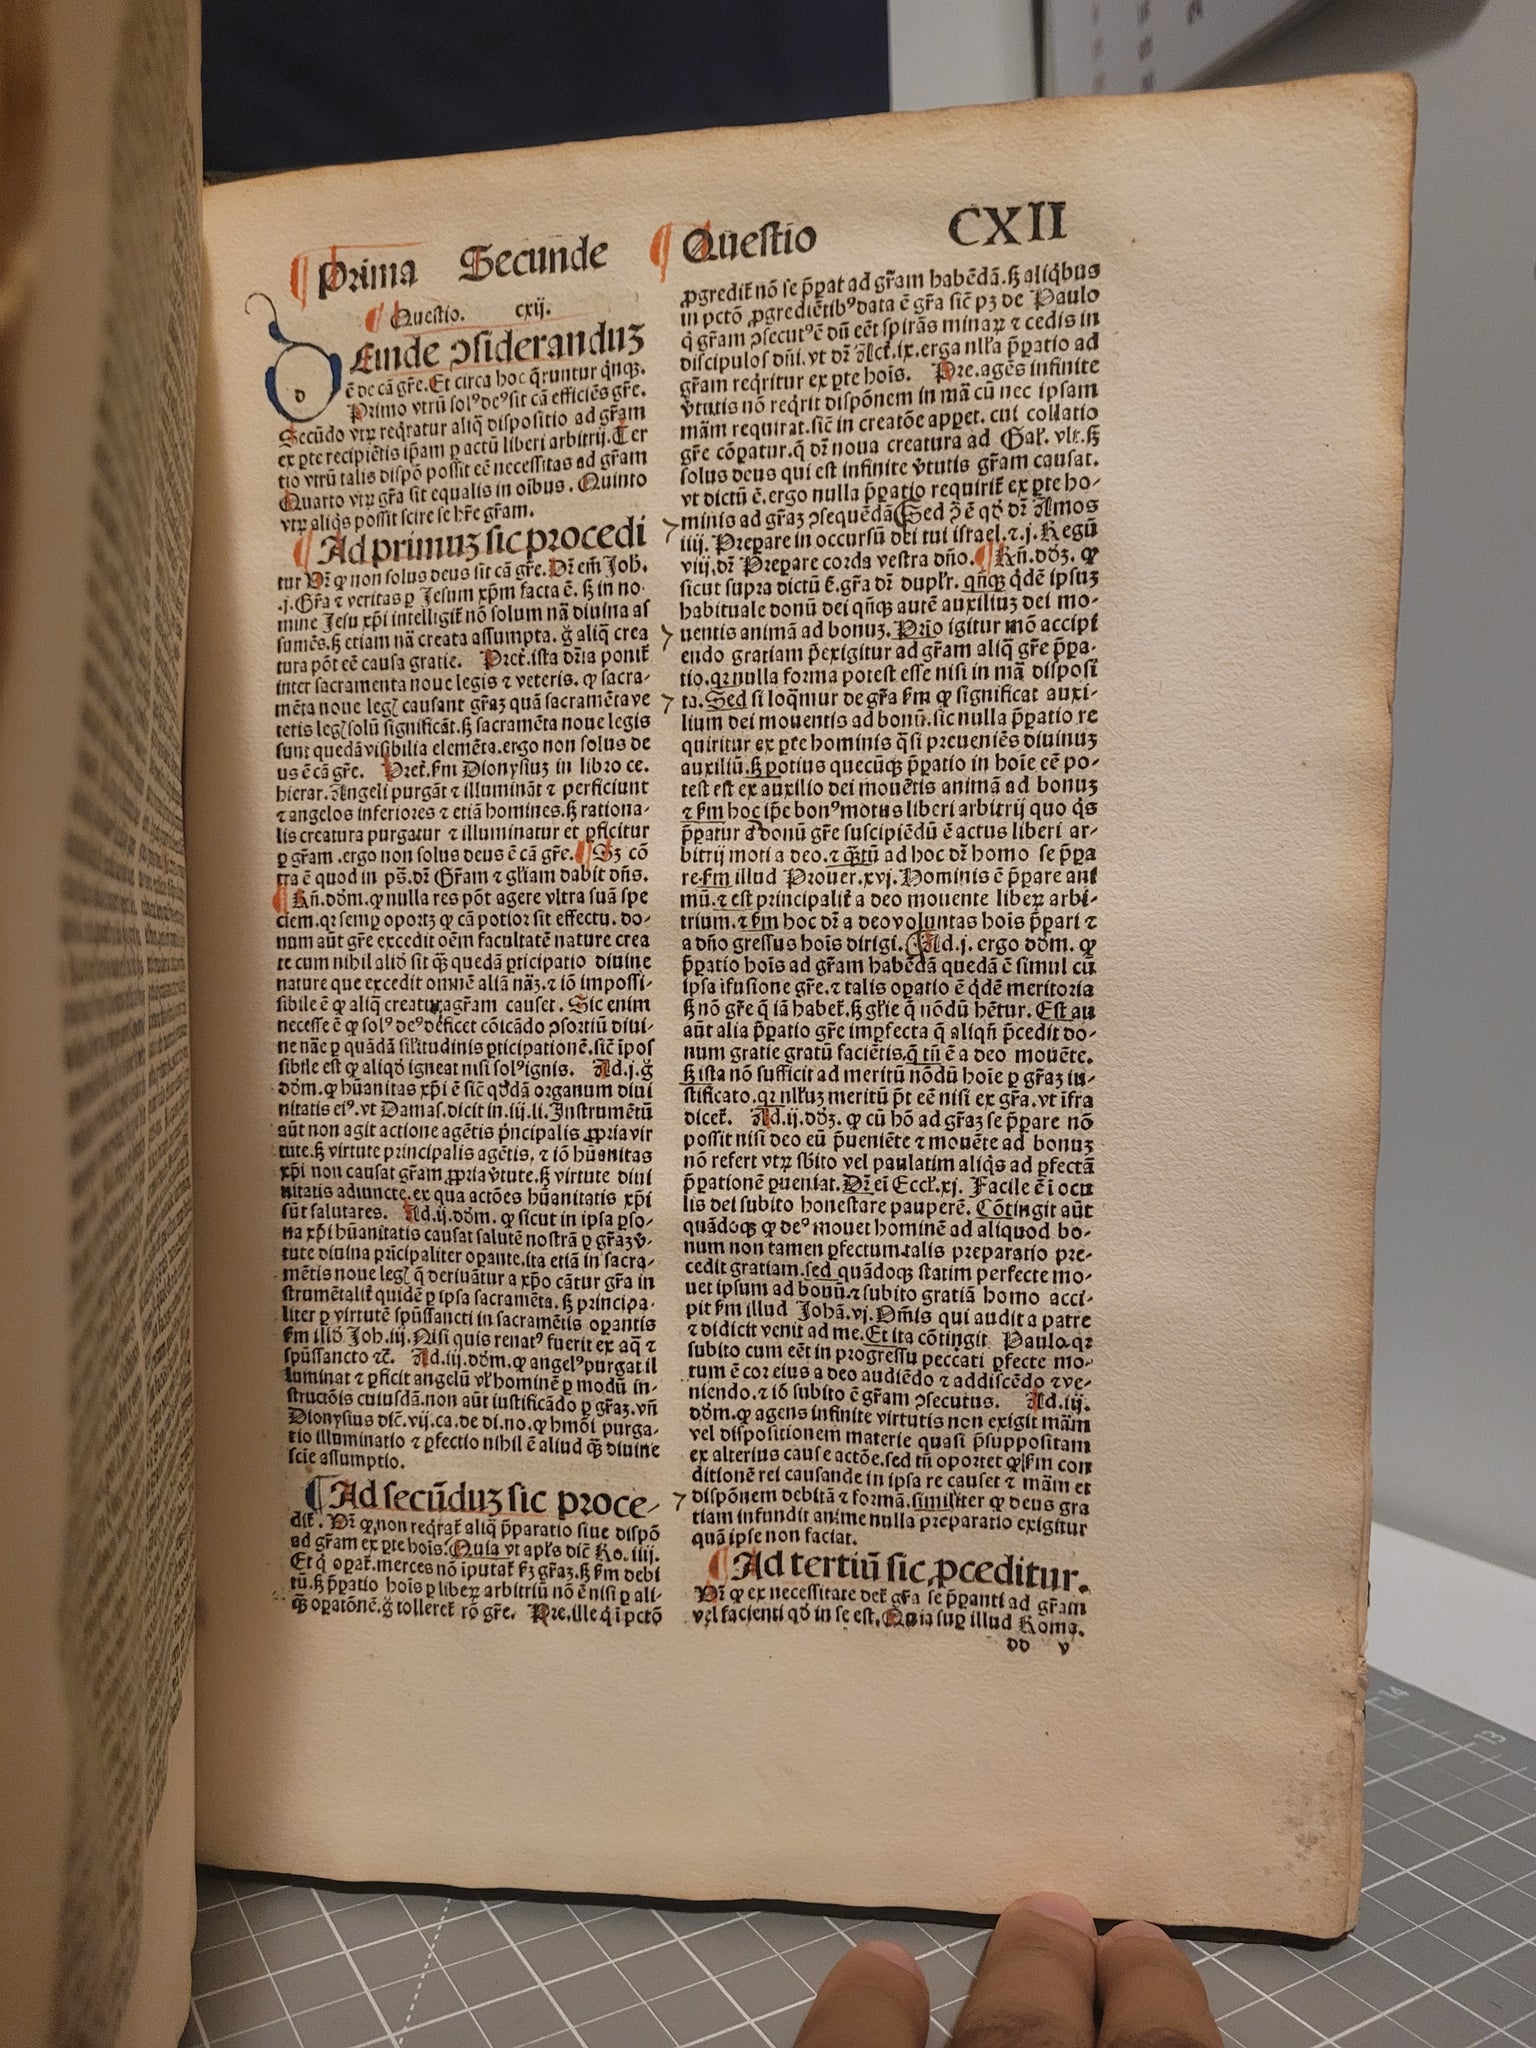 Prima Secunde
Questio
CXII
Questio. cxij.
Einde ↄsideranduꝫ
ē de cā gr̄e. Et circa hoc q̄runtur qͥnqꝫ.
Primo vtrū solꝰ deꝰ sit cā efficiēs gr̄e.
Secūdo vtꝝ reqͥratur aliq̄ dispositio ad gr̄am
ex ꝑte recipiētis ip̄am ꝑ actū liberi arbitrij. Ter
tio vtrū talis dispō possit eē necessitas ad gr̄am
Quarto vtꝝ gr̄a sit equalis in oībus. Quinto
vtꝝ aliqͥs possit scire se hr̄e gr̄am.
Ad primuꝫ sic procedi
tur Vr̄ ꝙ non solus deus sit cā gr̄e. Dr̄ em̄ Joh.
.j. Gr̄a ⁊ veritas ꝑ Jesum xp̄m facta ē. sꝫ in no⸗
mine Jesu xp̄i intelligit̄ nō solum nā diuina as
sumēs. sꝫ etiam nā creata assumpta. gͦ aliq̄ crea
tura pōt eē causa gratie. Pret̄. ista dr̄ia ponit̄
inter sacramenta noue legis ⁊ veteris. ꝙ sacra⸗
mēta noue legꝭ causant gr̄aꝫ quā sacramēta ve
teris legꝭ solū significāt. sꝫ sacramēta noue legis
sunt quedā visibilia elemēta. ergo non solus de
us ē cā gr̄e. Pret̄. s̄m Dionysiuꝫ in libro ce.
hierar. Angeli purgāt ⁊ illumināt ⁊ perficiunt
⁊ angelos inferiores ⁊ etiā homines. sꝫ rationa⸗
lis creatura purgatur ⁊ illuminatur et ꝑficitur
ꝑ gr̄am. ergo non solus deus ē cā gr̄e. Sꝫ cō
tra ē quod in ps̄. dr̄ Gr̄am ⁊ gl̄iam dabit dn̄s.
Rn̄. dōm. ꝙ nulla res pōt agere vltra suā spe
ciem. qꝛ semꝑ oportꝫ ꝙ cā potior sit effectu. do⸗
num aūt gr̄e excedit oēm facultatē nature crea
te cum nihil aliō sit qꝫ̄ quedā ꝑticipatio diuine
nature que excedit omnē aliā nāꝫ. ⁊ iō impossi⸗
sibile ē ꝙ aliq̄ creatura gr̄am causet. Sic enim
necesse ē ꝙ solꝰ deꝰ deificet cōicādo ↄsortiū diui⸗
ne nāe ꝑ quādā sil̄itudinis ꝑticipationē. sic̄ īpos
sibile est ꝙ aliqō igneat nisi solꝰ ignis. Ad .j. gͦ
dōm. ꝙ hūanitas xp̄i ē sic̄ qōdā organum diui
nitatis eiꝰ. vt Damas. dicit in .iij. li. Instrumētū
aūt non agit actione agētis pͥncipalis ꝓpria vir
tute. sꝫ virtute principalis agētis, ⁊ iō hūanitas
xp̄i non causat gr̄am ꝓpria v̄tute. sꝫ virtute diui
nitatis adiuncte. ex qua actōes hūanitatis xp̄i
sūt salutares. Ad .ij. dōm. ꝙ sicut in ipsa ꝑso⸗
na xp̄i hūanitatis causat salutē nostrā ꝑ gr̄aꝫ v̄⸗
tute diuina pͥncipaliter oꝑante. ita etiā in sacra⸗
mētis noue legꝭ q̄ deriuātur a xp̄o cātur gr̄a in
strumētalit̄ quidē ꝑ ipsa sacramēta. sꝫ principa⸗
liter ꝑ virtutē spūssancti in sacramētis oꝑantis
s̄m illō Joh. iij. Nisi quis renatꝰ fuerit ex aq̄ ⁊
spūssancto ⁊c̄. Ad .iij. dōm. ꝙ angelꝰ purgat il
luminat ⁊ ꝑficit angelū vl̄ hominē ꝑ modū in⸗
structōis cuiusdā. non aūt iustificādo ꝑ gr̄aꝫ. vn̄
Dionysius dic̄. vij. ca. de di. no. ꝙ hmōi purga⸗
tio illuminatio ⁊ ꝑfectio nihil ē aliud qꝫ̄ diuine
scie assumptio.
Ad secūduꝫ sic proce⸗
dit̄. Vr̄ ꝙ non reqͥrat̄ aliq̄ p̄paratio siue dispō
ad gr̄am ex ꝑte hoīs. Quia vt apl̄s dic̄ Ro. iiij.
Et qͥ oꝑat̄. merces nō īputat̄ s̄ꝫ gr̄aꝫ. sꝫ s̄m debi
tū. sꝫ p̄ꝑatio hoīs ꝑ libeꝝ arbitriū nō ē nisi ꝑ ali⸗
qꝫ̄ oꝑatōnē. gͦ tolleret̄ rō gr̄e. Pre. ille qͥ ī pctō
ꝓgredit̄ nō se p̄ꝑat ad gr̄am habēdā. sꝫ aliqͥbus
in pctō ꝓgrediētibꝰ data ē gr̄a sic̄ pꝫ de Paulo
qͥ gr̄am ↄsecutꝰ ē dū eēt spirās minaꝝ ⁊ cedis in
discipulos dn̄i. vt dr̄ Act. ix. erga nl̄la p̄ꝑatio ad
gr̄am reqͥritur ex ꝑte hoīs. Pre. agēs infinite
v̄tutis nō reqͥrit dispōnem in mā cū nec ipsam
mām requirat. sic̄ in creatōe appet. cui collatio
gr̄e cōꝑatur. q̄ dr̄ noua creatura ad Gal̄. vlt. sꝫ
solus deus qui est infinite v̄tutis gr̄am causat.
vt dictū ē. ergo nulla p̄ꝑatio requirit̄ ex ꝑte ho⸗
minis ad gr̄aꝫ ↄsequēdā Sed ↄ̄ ē qō dr̄ Amos
iiij. Prepare in occursū dei tui israel. ⁊ .j. Regū
viij. dr̄ Prepare corda vestra dn̄o. Rn̄. dōꝫ. ꝙ
sicut supra dictū ē. gr̄a dr̄ dupl̄r. qn̄qꝫ qͥdē ipsuꝫ
habituale donū dei qn̄qꝫ autē auxiliuꝫ dei mo⸗
uentis animā ad bonuꝫ. Prīo igitur mō accipi
endo gratiam p̄exigitur ad gr̄am aliq̄ gr̄e p̄ꝑa⸗
tio. qꝛ nulla forma potest esse nisi in mā disposi
ta. Sed si loqͣmur de gr̄a s̄m ꝙ significat auxi⸗
lium dei mouentis ad bonū. sic nulla p̄ꝑatio re
quiritur ex ꝑte hominis qͣsi preueniēs diuinuꝫ
auxiliū. sꝫ potius quecūqꝫ p̄ꝑatio in hoīe eē po⸗
test est ex auxilio dei mouētis animā ad bonuꝫ
⁊ s̄m hoc ip̄e bonꝰ motus liberi arbitrij quo qͥs
p̄ꝑatur ad donū gr̄e suscipiēdū ē actus liberi ar⸗
bitrij moti a deo. ⁊ qꝫ̄tū ad hoc dr̄ homo se p̄ꝑa
re. s̄m illud Prouer. xvj. Hominis ē p̄ꝑare ani
mū. ⁊ est principalit̄ a deo mouente libeꝝ arbi⸗
trium. ⁊ s̄m hoc dr̄ a deo voluntas hoīs p̄ꝑari ⁊
a dn̄o gressus hoīs dirigi. Ad .j. ergo dōm. ꝙ
p̄ꝑatio hoīs ad gr̄am habēdā quedā ē simul cū
ipsa īfusione gr̄e. ⁊ talis oꝑatio ē qͥdē meritoria
sꝫ nō gr̄e q̄ iā habet̄. sꝫ gl̄ie q̄ nōdū hētur. Est au
aūt alia p̄ꝑatio gr̄e imꝑfecta q̄ aliqn̄ p̄cedit do⸗
num gratie gratū faciētis. q̄ tn̄ ē a deo mouēte.
sꝫ ista nō sufficit ad meritū nōdū hoīe ꝑ gr̄aꝫ iu⸗
stificato. qꝛ nl̄luꝫ meritū pt̄ eē nisi ex gr̄a. vt īfra
dicet̄. Ad .ij. dōꝫ. ꝙ cū hō ad gr̄aꝫ se p̄ꝑare nō
possit nisi deo eū p̄ueniēte ⁊ mouēte ad bonuꝫ
nō refert vtꝝ sb̄ito vel paulatim aliqͥs ad ꝑfectā
p̄ꝑationē ꝑueniat. Dr̄ eī Eccl̄. xj. Facile ē ī ocu
lis dei subito honestare pauperē. Cōtingit aūt
quādoqꝫ ꝙ deꝰ mouet hominē ad aliquod bo⸗
num non tamen ꝑfectum. talis preparatio pre⸗
cedit gratiam. sed quādoqꝫ statim perfecte mo⸗
uet ipsum ad bonū. ⁊ subito gratiā homo acci⸗
pit s̄m illud Johā. vj. Om̄is qui audit a patre
⁊ didicit venit ad me. Et ita cōtingit Paulo. qꝛ
subito cum eēt in progressu peccati ꝑfecte mo⸗
tum ē cor eius a deo audiēdo ⁊ addiscēdo ⁊ ve⸗
niendo. ⁊ iō subito ē gr̄am ↄsecutus. Ad .iij.
dōm. ꝙ agens infinite virtutis non exigit mām
vel dispositionem materie quasi p̄suppositam
ex alterius cause actōe. sed tn̄ oportet ꝙ s̄m con
ditionē rei causande in ipsa re causet ⁊ mām et
dispōnem debitā ⁊ formā. similiter ꝙ deus gra
tiam infundit anime nulla preparatio exigitur
quā ipse non faciat.
Ad tertiū sic ꝓceditur.
Vr̄ ꝙ ex necessitate det̄ gr̄a se p̄ꝑanti ad gr̄am
vel facienti qō in se est. Quia suꝑ illud Roma.
dd v